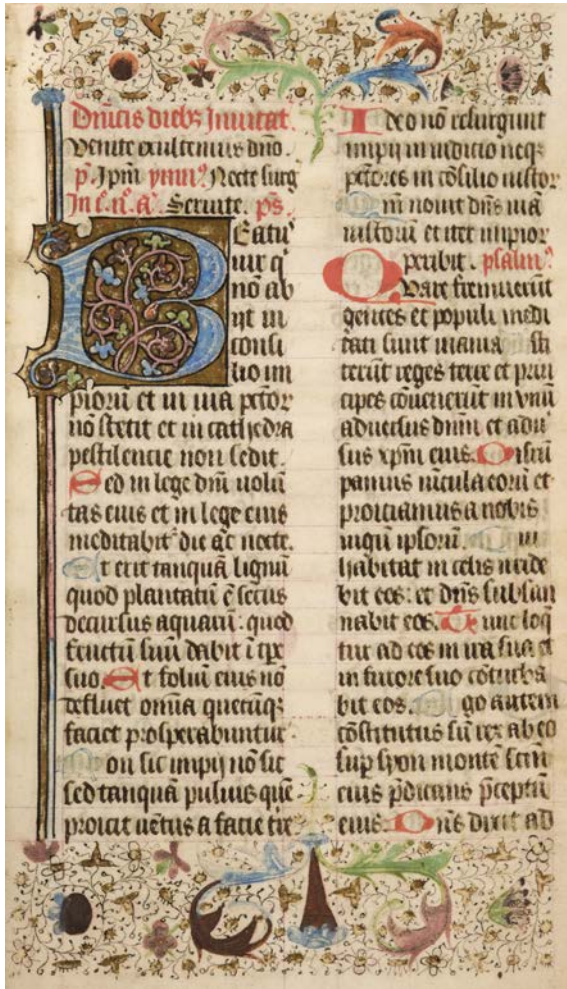 Dnicis diebz Inuitat.
Venite exultemus dno.
p̄. Ipm ymn⁹. Nocte surg
In e. n̄. a. Seruite. ps.
Beatu⁹
uir q
nō ab
ijt in
consi
lio im
pioruī et in uia pctor
nō stetit et in cathedra
pestilencie non sedit.
Sed in lege dnī uolū
tas eius et in lege eius
meditabit᷑ die ac nocte.
Et erit tanquā lignū
quod plantatū ē secus
decursus aquarū: quod
fructū suū dabit ī tpe
suo. Et foliū eius nō
defluet omīa quecūqz
faciet prosperabuntur
Non sic impij nō sic
sed tanquā puluis quē
proicit uētus a facie tre
Ideo nō resurgunt
impij in iudicio neqz
pctōres in cōsilio iustor
m nouit dns uiā
iustorū et iter impior
peribit. psalm⁹.
Quare fremuerūt
gentes et populi medi
tati sunt inania sti
terūt reges terre et prin
cipes cōuenerūt in vnū
aduersus dnm̄ et adu
sus xpm̄ eius. Disrū
pamus uīcula eorū et
proiciamus a nobis
iugū ipsorū. Qui
habitat in celis iride
bit eos: et dns subsan
nabit eos. Tunc loq
tur ad eos in ira sua et
in furore suo cōturba
bit eos. Ego autem
cōstitutus sū rex ab eo
sup syon montē scm̄
eius p̄dicans p̄ceptū
eius. Dns dixit ad